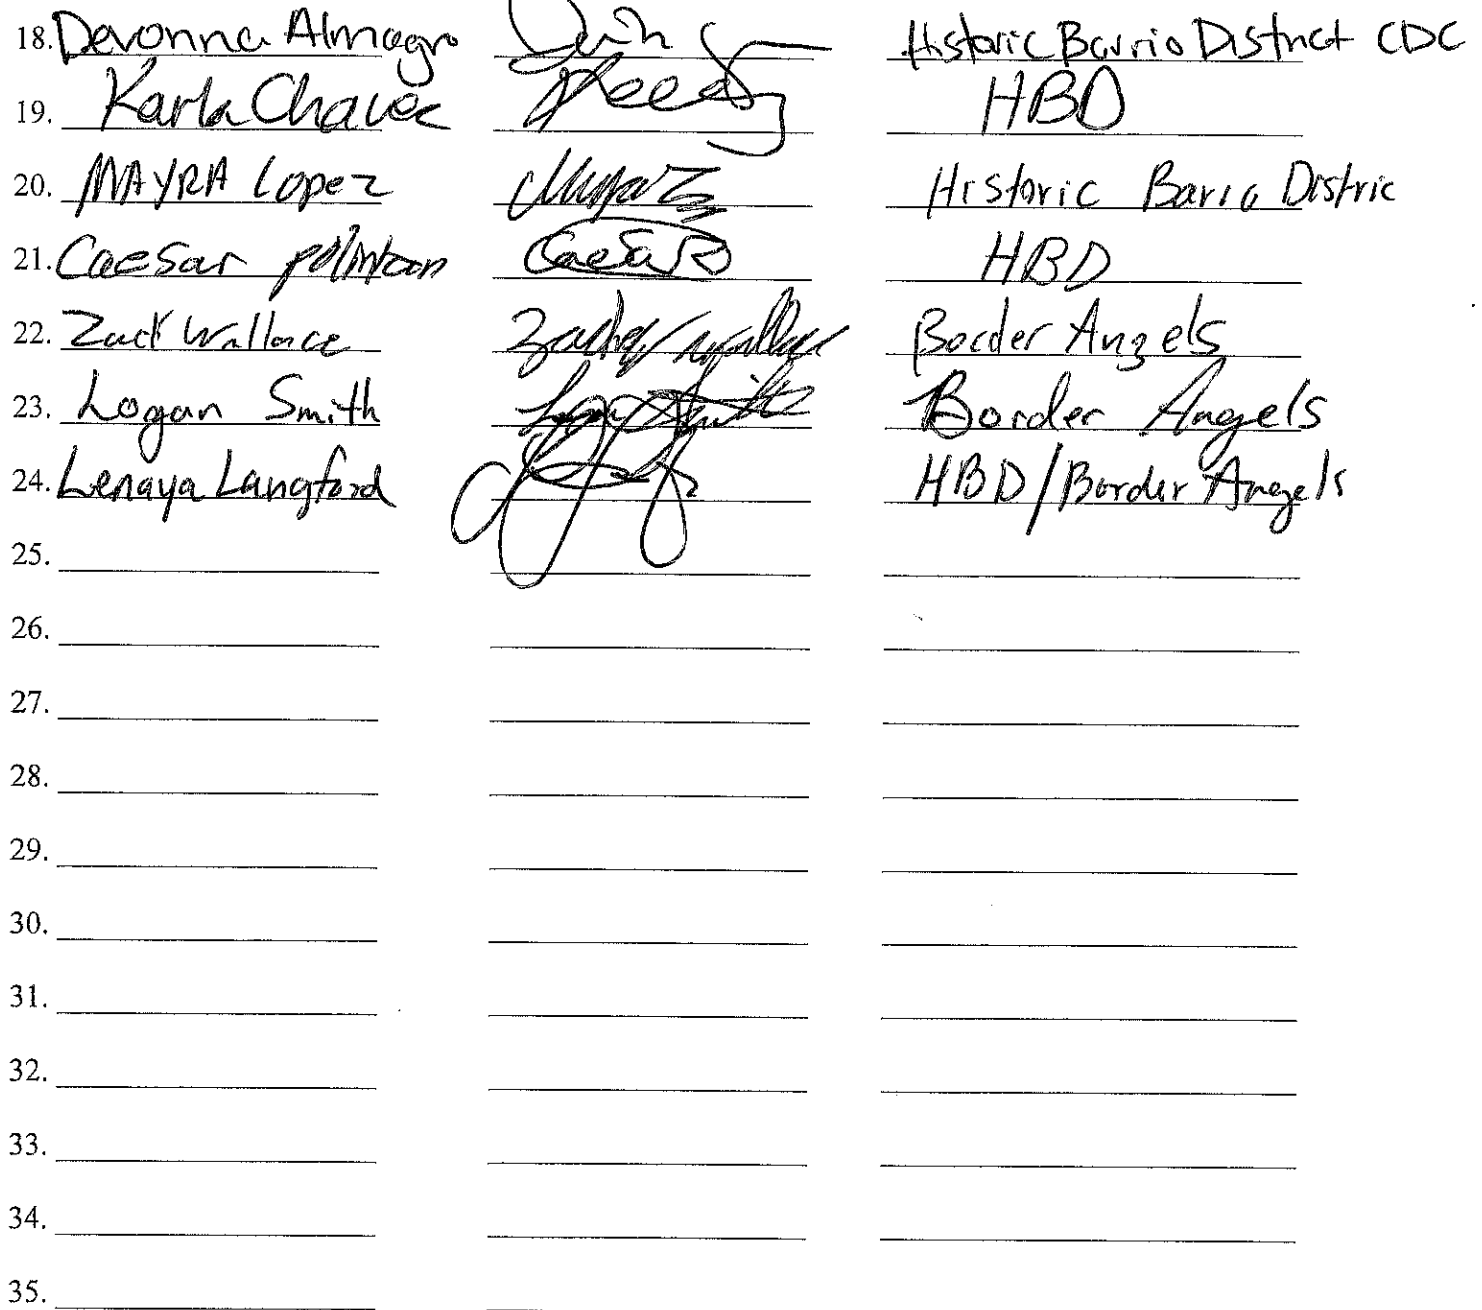 18. Devonna Almagro Historic Barrio District CDC
19. Karla Chavez HBD
20. MAYRA Lopez Historic Barrio Distric
21. Caesar Caesar HBD
22. Zack Wallace Wallace Border Angels
23. Logan Smith Logan Smith Border Angels
24. Lenaya Langford HBD/Border Angels
25.
26.
27.
28.
29.
30.
31.
32.
33.
34.
35.